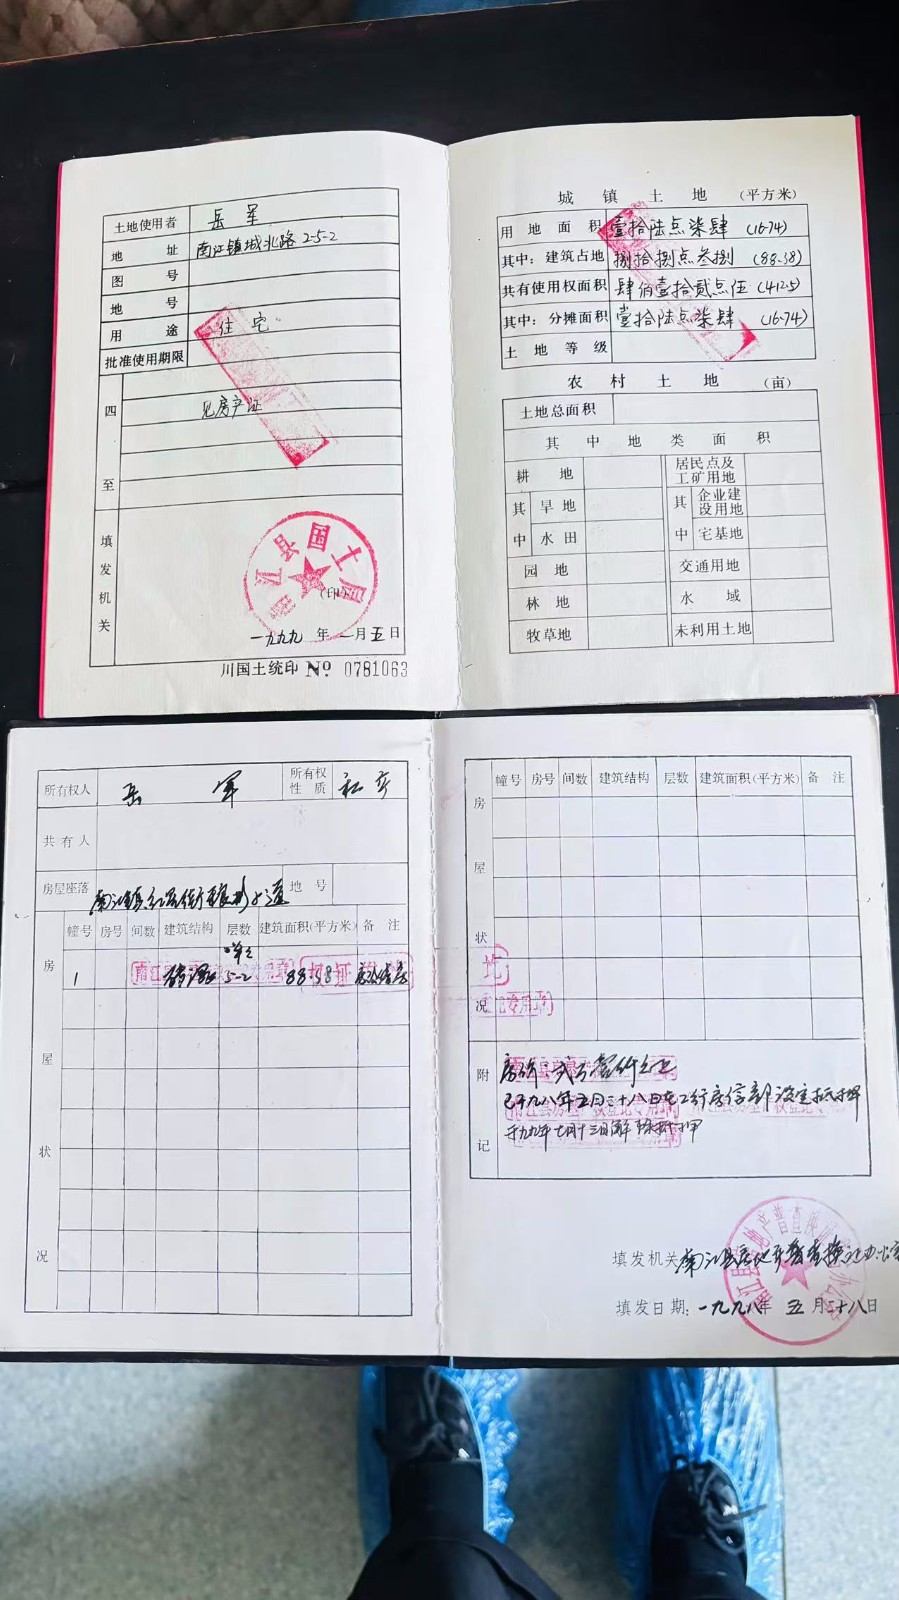 土地使用者 岳军
地址 南江镇城北路2-5-2
图号
地号
用途 住宅
批准使用期限
四至 见房产证
填发机关
江县国土局
(印)
一九九九年一月五日
川国土统印 № 0781063
城镇土地 (平方米)
用地面积 壹拾陆点柒肆 (16.74)
其中：建筑占地 捌拾捌点叁捌 (88.38)
共有使用权面积 肆佰壹拾贰点伍 (412.5)
其中：分摊面积 壹拾陆点柒肆 (16.74)
土地等级
农村土地 (亩)
土地总面积
其中地类面积
耕地 居民点及工矿用地
其中 旱地 其中 企业建设用地
水田 宅基地
园地 交通用地
林地 水域
牧草地 未利用土地
所有权人 岳军 所有权性质 私产
共有人
房屋座落 南江镇 地号
房屋状况
幢号 房号 间数 建筑结构 层数 建筑面积(平方米) 备注
1 5-2 88.38
房屋状况
幢号 房号 间数 建筑结构 层数 建筑面积(平方米) 备注
附记
已于九八年五月二十八日在工行房信部设定抵押
于九九年七月十三日解除抵押
填发机关 南江县房地产普查换证办公室
填发日期：一九九八年五月二十八日